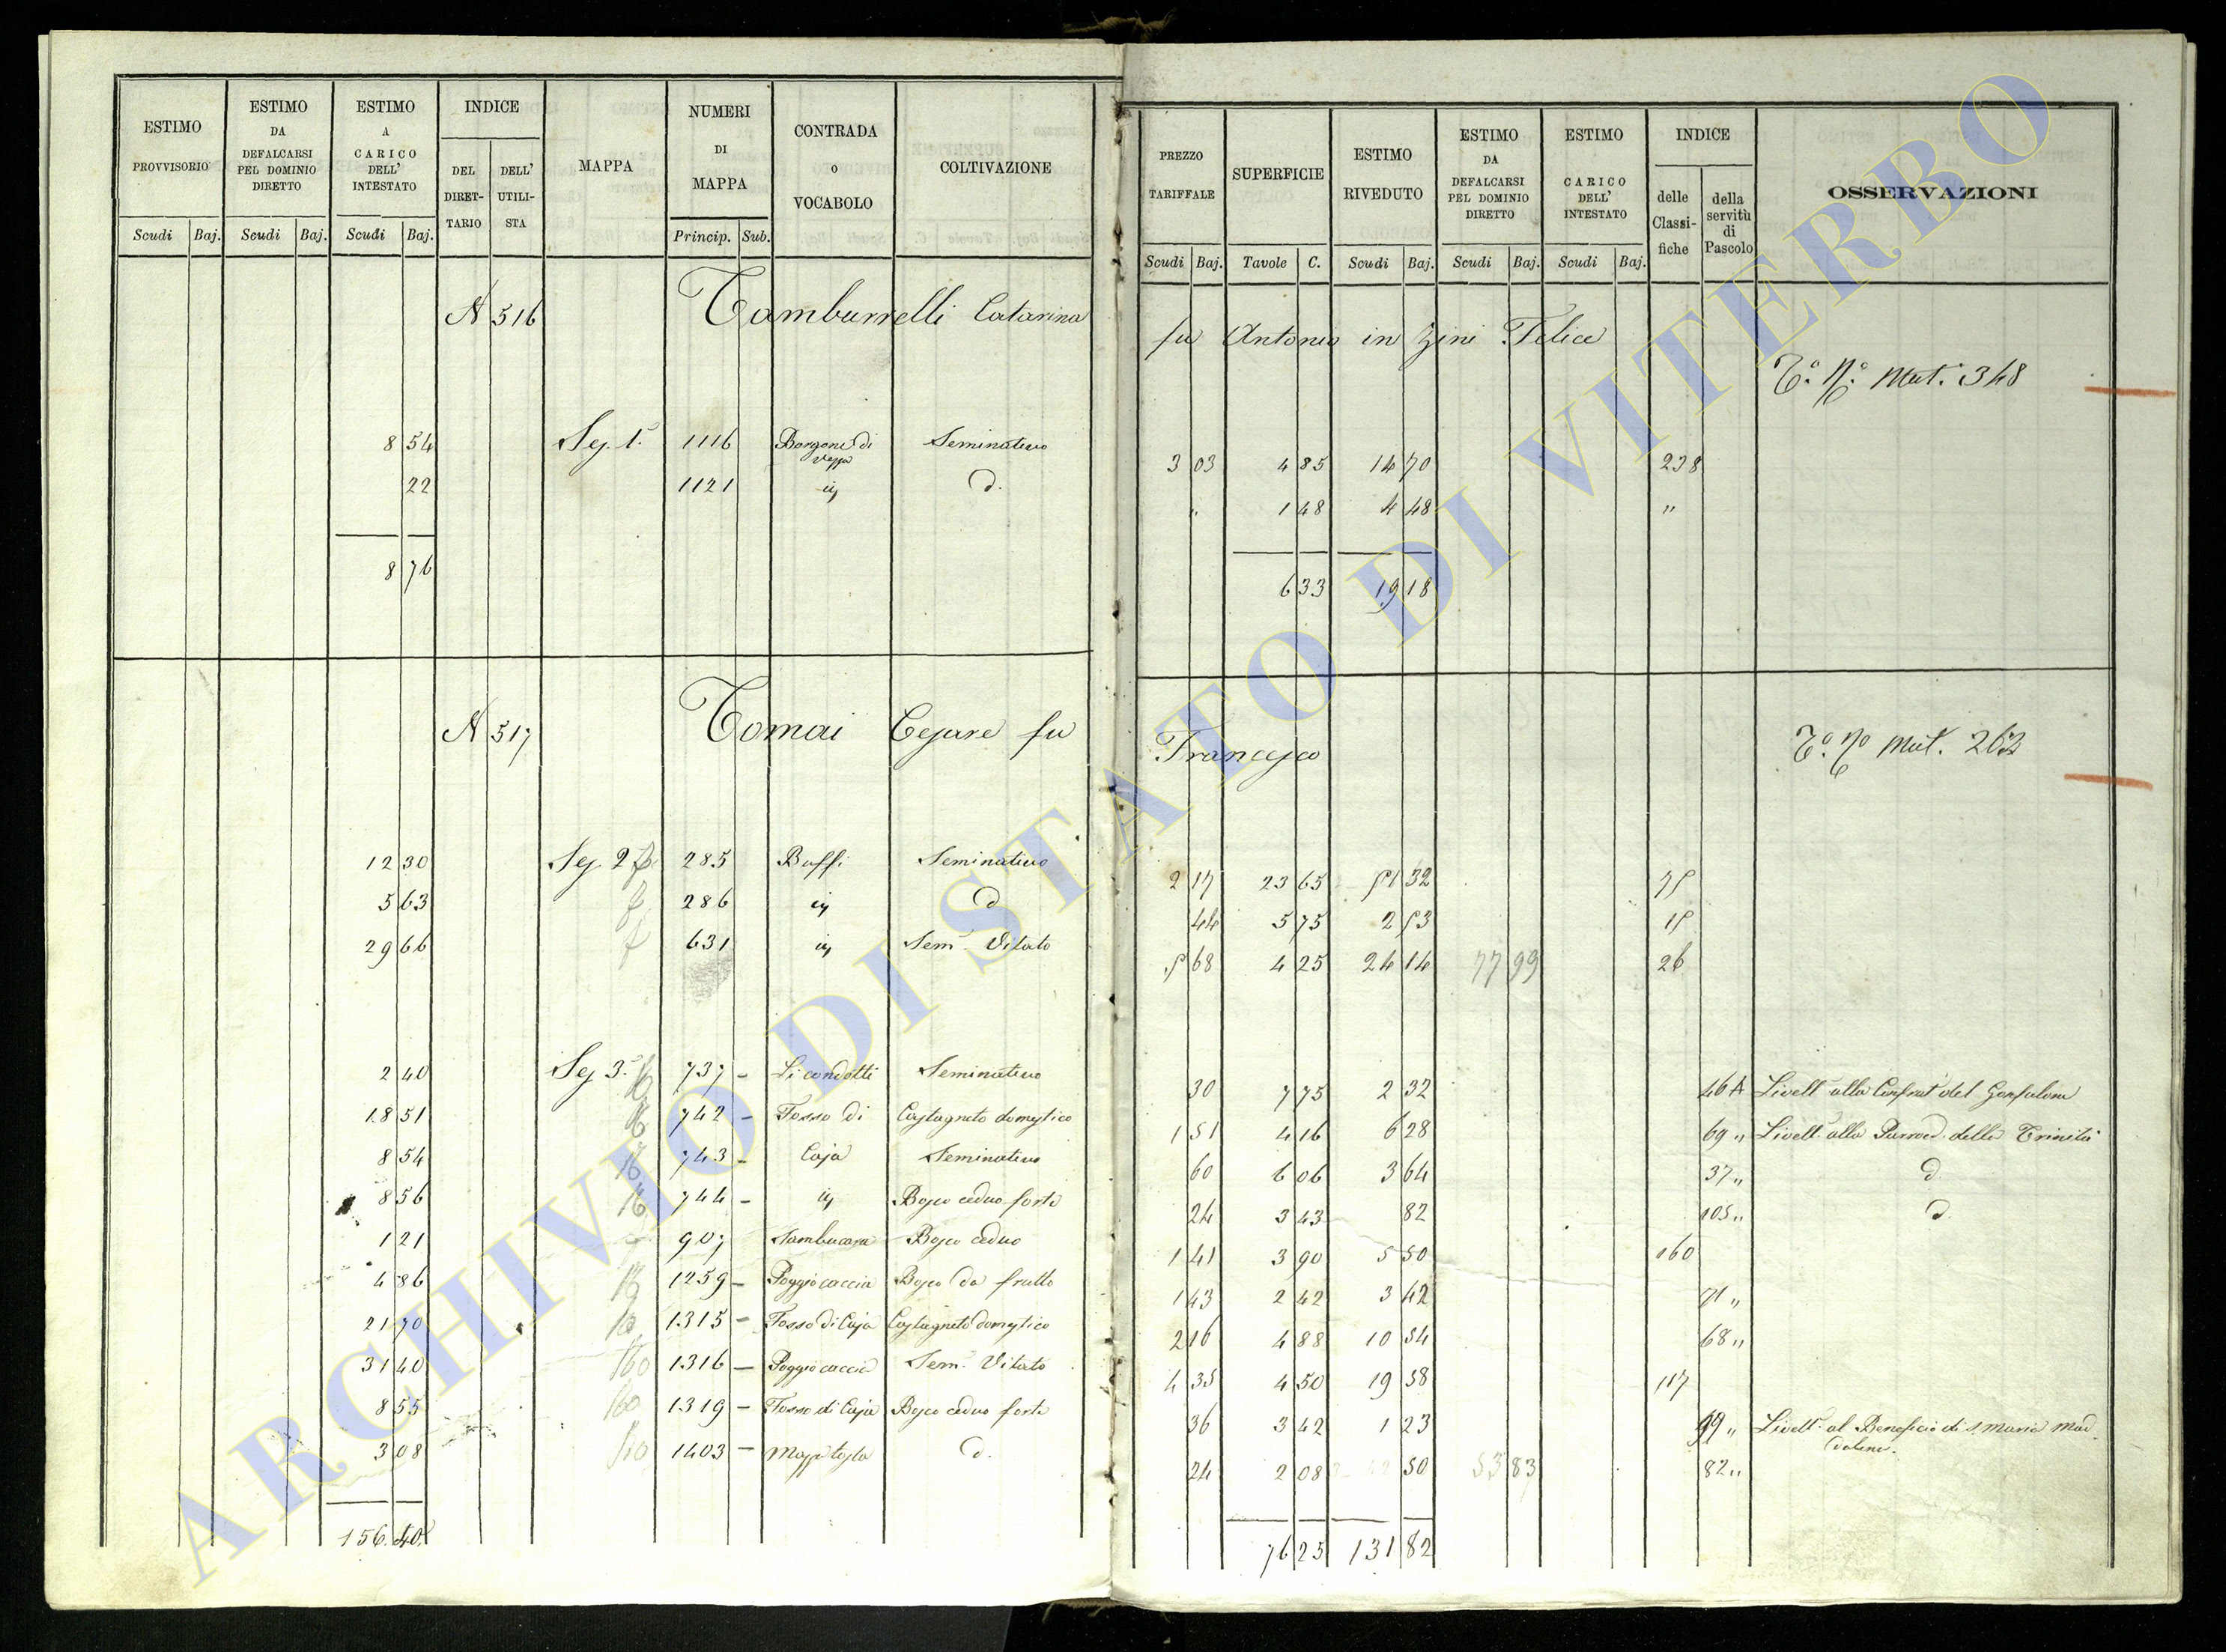 ESTIMO PROVVISORIO | ESTIMO DA DEFALCARSI PEL DOMINIO DIRETTO | ESTIMO A CARICO DELL' INTESTATO | INDICE | MAPPA | NUMERI DI MAPPA | CONTRADA o VOCABOLO | COLTIVAZIONE
DEL DIRETTARIO | DELL' UTILISTA
Scudi | Baj. | Scudi | Baj. | Scudi | Baj. | Princip. | Sub.
N 516 Tamburrelli Catarina
8 54 Sez. 1ª 1116 Borgone di Vezza Seminativo
22 1121 id d.
8 76
N 517 Tomai Cesare fu
12 30 Sez. 2ª 285 Buffi Seminativo
5 63 286 id d
29 66 631 id Sem. Vitato
2 40 Sez 3ª 737 - Li condotti Seminativo
18 51 742 - Fosso di Castagneto domestico
8 54 743 - Caja Seminativo
8 56 744 - id Bosco ceduo forte
1 21 907 Sambucara Bosco ceduo
4 86 1259 - Poggio caccia Bosco da frutto
21 70 1315 - Fosso di Caja Castagneto domestico
31 40 1316 - Poggio caccia Sem. Vitato
8 55 1319 - Fosso di Caja Bosco ceduo forte
3 08 1403 - d.
156.40
PREZZO TARIFFALE | SUPERFICIE | ESTIMO RIVEDUTO | ESTIMO DA DEFALCARSI PEL DOMINIO DIRETTO | ESTIMO CARICO DELL' INTESTATO | INDICE | OSSERVAZIONI
delle Classifiche | della servitù di Pascolo
Scudi | Baj. | Tavole | C. | Scudi | Baj. | Scudi | Baj. | Scudi | Baj.
fu Antonio in Zini Felice
Mut. 348
3 03 4 85 14 70 238
" 1 48 4 48 "
6 33 19 18
Francesco
Mut. 262
2 17 23 65 51 32 75
44 5 75 2 53 15
5 68 4 25 24 14 77 99 26
30 7 75 2 32 46 A Livell. alla Confrat. del Gonfalone
1 51 4 16 6 28 69 " Livell. alla Parroc. della Trinità
60 6 06 3 64 37 " d
24 3 43 82 105 " d.
1 41 3 90 5 50 160
1 43 2 42 3 42 71 "
2 16 4 88 10 54 68 "
4 35 4 50 19 58 117
36 3 42 1 23 99 " Livell. al Beneficio di S. Maria Maddalena.
24 2 08 50 53 83 82 "
76 25 131 82
ARCHIVIO DI STATO DI VITERBO